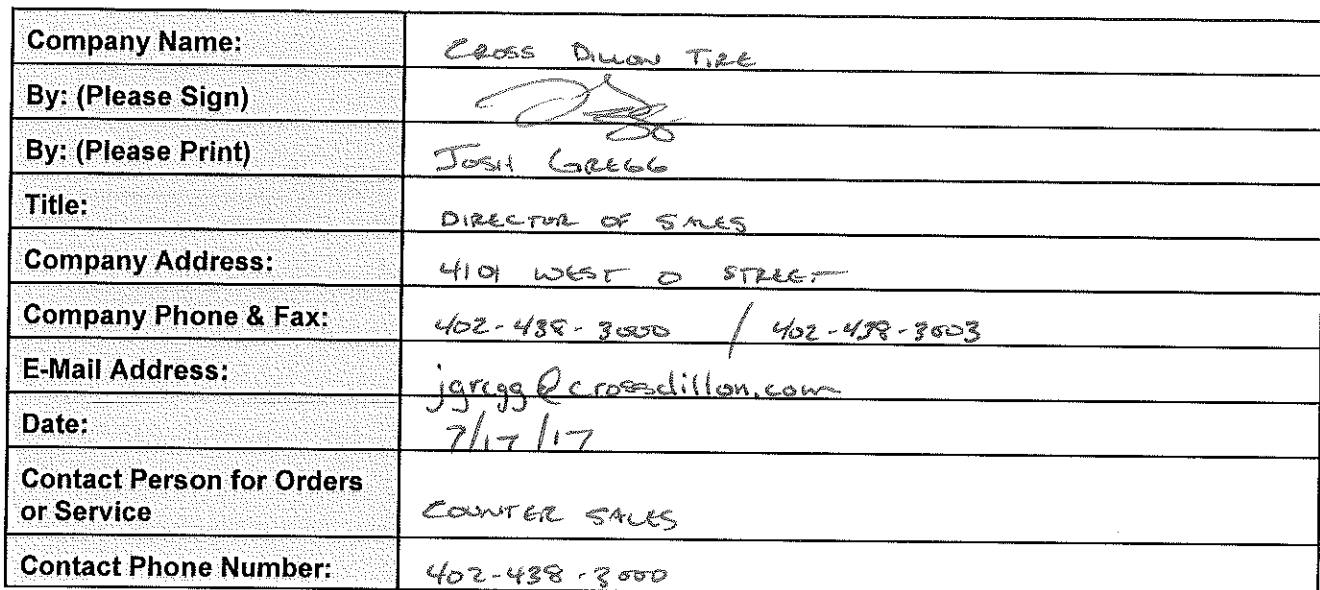 Company Name: CROSS DILLON TIRE
By: (Please Sign)
By: (Please Print) JOSH GREGG
Title: DIRECTOR OF SALES
Company Address: 4101 WEST O STREET
Company Phone & Fax: 402-438-3000 / 402-438-3003
E-Mail Address: jgregg@crossdillon.com
Date: 7/17/17
Contact Person for Orders
or Service COUNTER SALES
Contact Phone Number: 402-438-3000